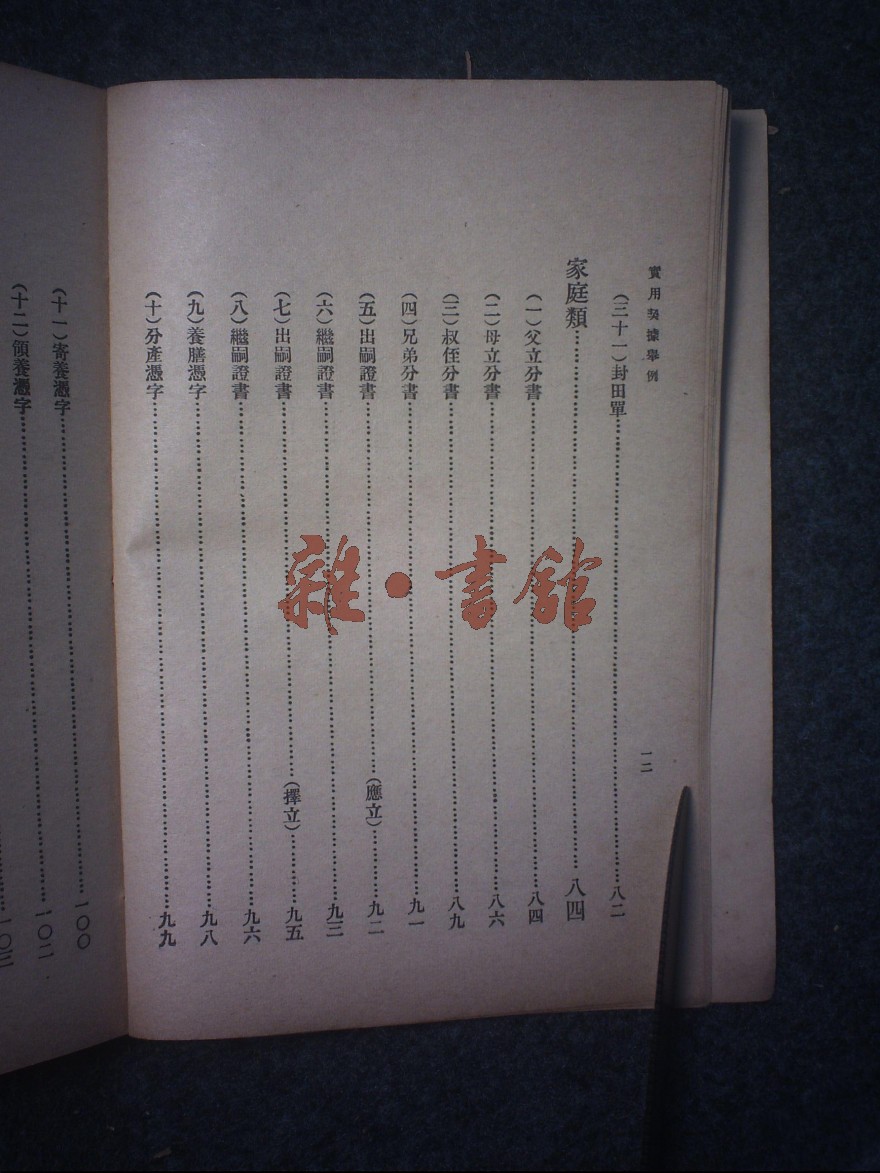 實用契據舉例
一二
(三十一)封田單……八二
家庭類……八四
(一)父立分書……八四
(二)母立分書……八六
(三)叔侄分書……八九
(四)兄弟分書……九一
(五)出嗣證書……(應立)……九二
(六)繼嗣證書……九三
(七)出嗣證書……(擇立)……九五
(八)繼嗣證書……九六
(九)養膳憑字……九八
(十)分產憑字……九九
(十一)寄養憑字……一〇〇
(十二)領養憑字……一〇二
一〇三
雜·書館